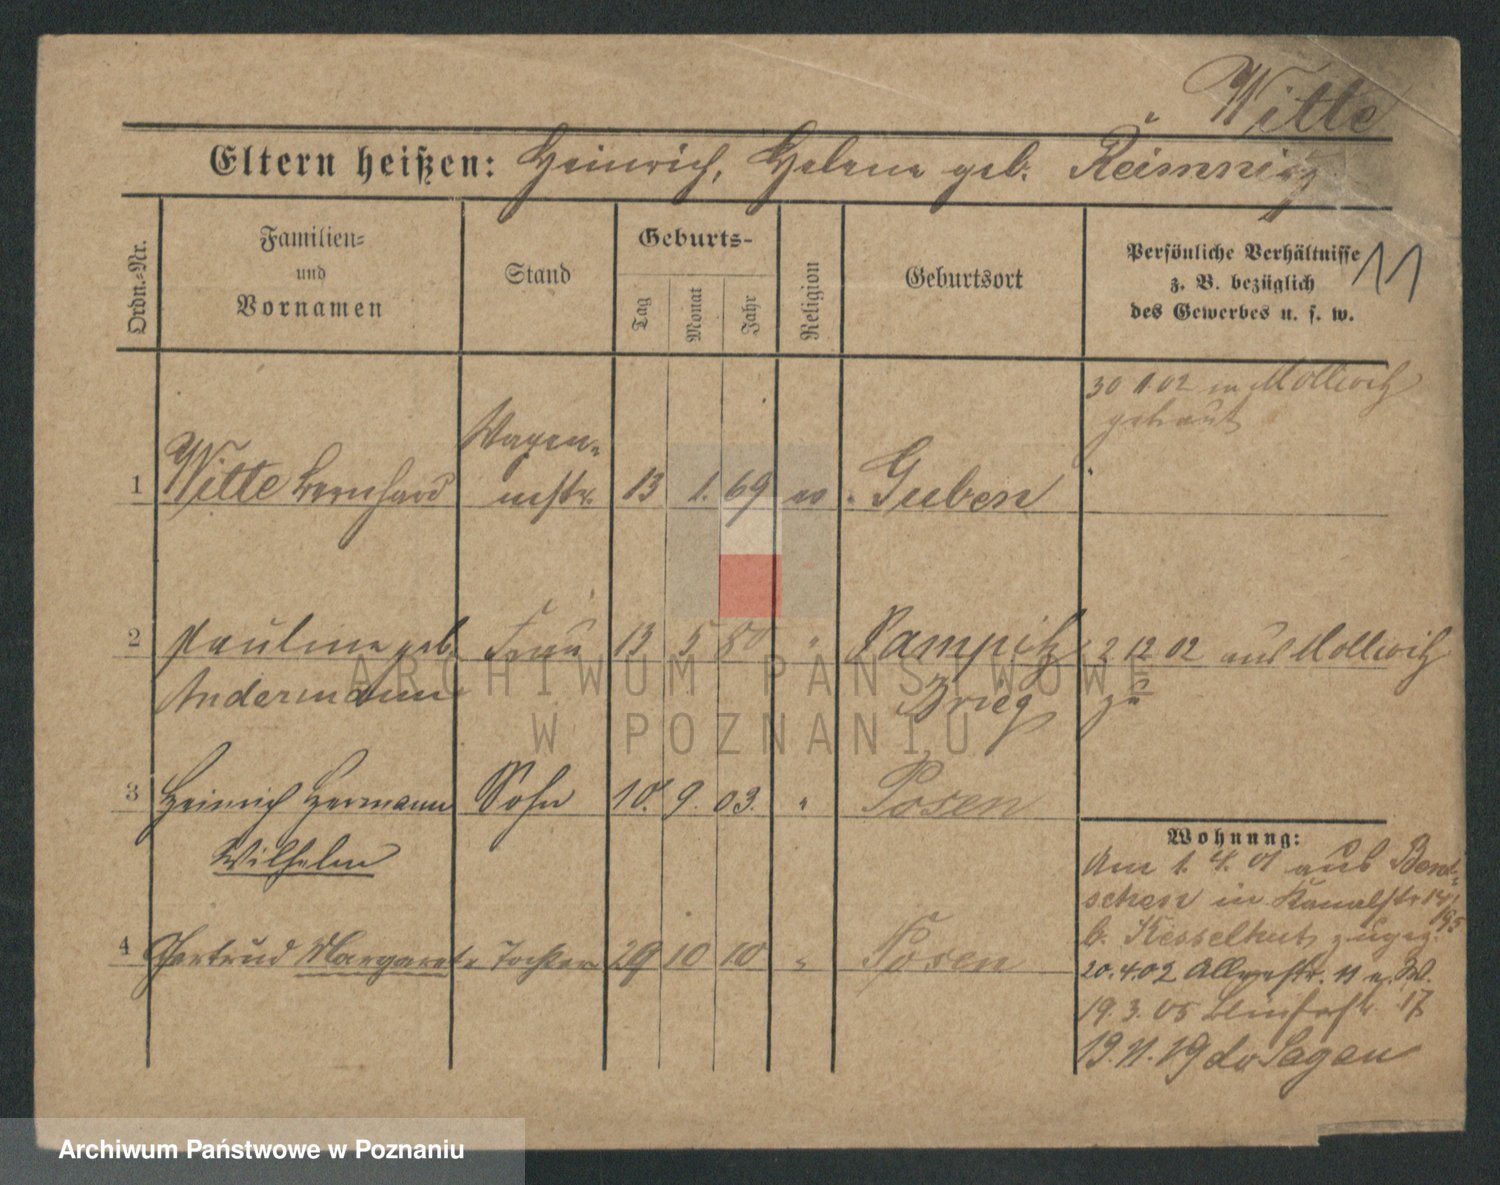 Witte
Eltern heißen: Heinrich, Helene geb. Reimnitz
Ordn.-Nr.
Familien- und Vornamen
Stand
Geburts-
Tag
Monat
Jahr
Religion
Geburtsort
Persönliche Verhältnisse
z. B. bezüglich
des Gewerbes u. s. w.
11
30 11.02 in Mollwitz
getraut
Wagen-
1 Witte Bernhard mstr. 13 1. 69 ev. Guben
2 Pauline geb. Frau 13 5 80 " Pampitz 2 12 02 aus Mollwitz
Andermann Brieg zu
3 Heinrich Hermann Sohn 10. 9. 03. " Posen
Wilhelm
4 Gertrud Margarete Tochter 29 10 10 " Posen
Wohnung:
Am 1. 4. 01 aus Bent-
schen in Kanalstr.
b. Kesselhut zugez.
20.4.02 11 n. W.
19. 3. 05 17
19. 11. 19 do Sagan
ARCHIWUM PAŃSTWOWE
W POZNANIU
Archiwum Państwowe w Poznaniu